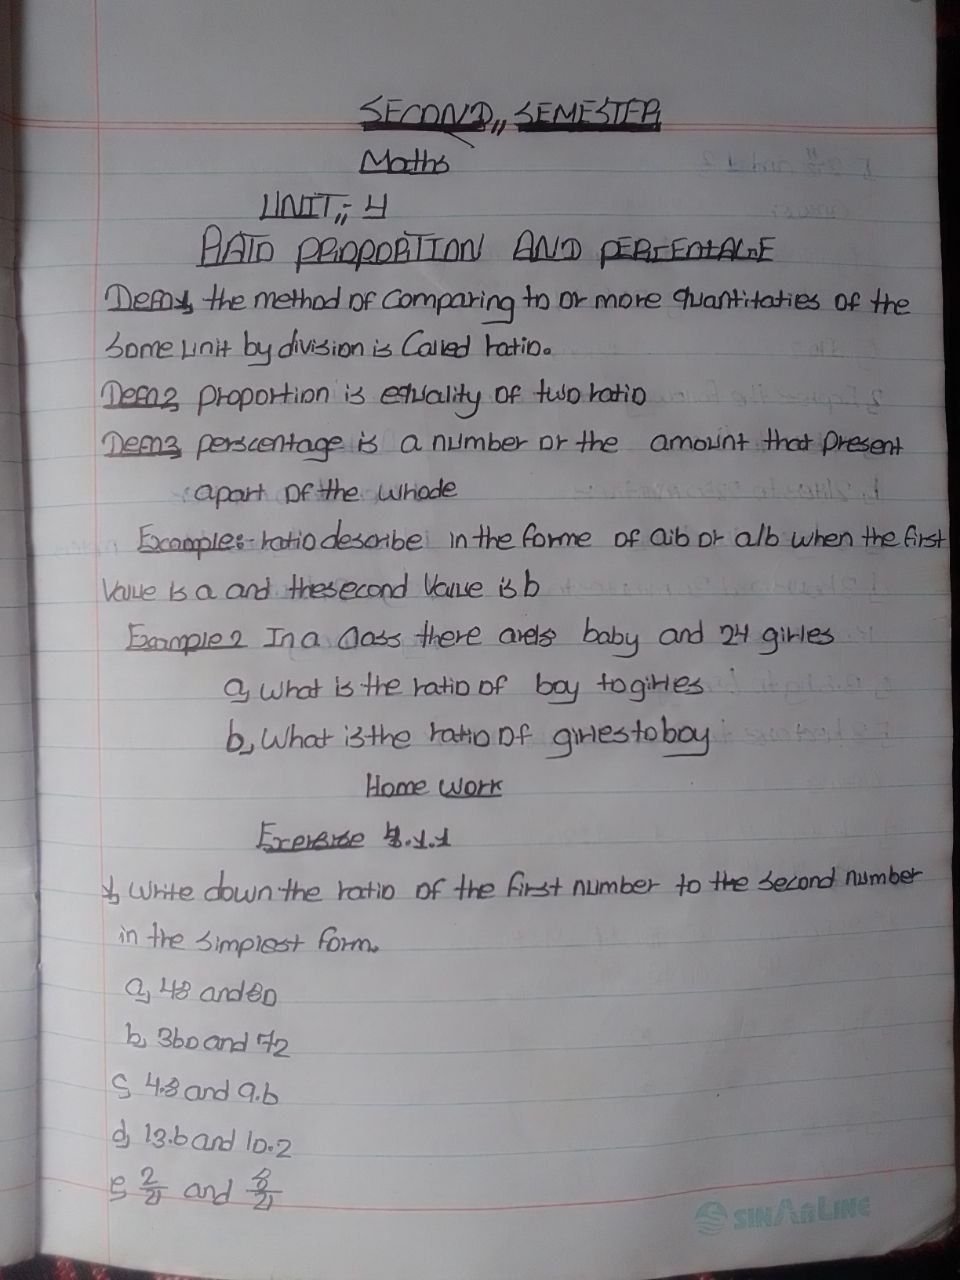 SECOND,, SEMESTER
Maths
UNIT,; 4
RATO PROPORTION AND PERCENTAGE
Defn1, the method of comparing to or more quantitaties of the
Same unit by division is Called ratio.
Defn2 proportion is equality of two ratio
Defn3 perscentage is a number or the amount that present
apart of the whode
Example:- ratio describe in the forme of a:b or a/b when the first
Value is a and the second Value is b
Example 2 In a Class there are baby and 24 girles
a, What is the ratio of boy to girles
b, What is the ratio of girles to boy
Home Work
Exersise 4.1.1
1, Write down the ratio of the first number to the second number
in the simplest form.
a, 48 and 80
b, 360 and 72
c, 4.8 and 9.6
d, 13.6 and 10.2
e, 2/21 and 8/21
SINARLINE